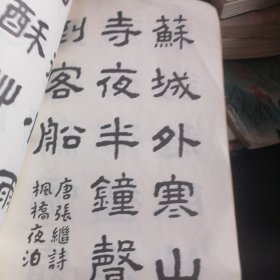 蘇城外寒山
寺夜半鐘聲
到客船
唐張繼詩
楓橋夜泊
酥艸